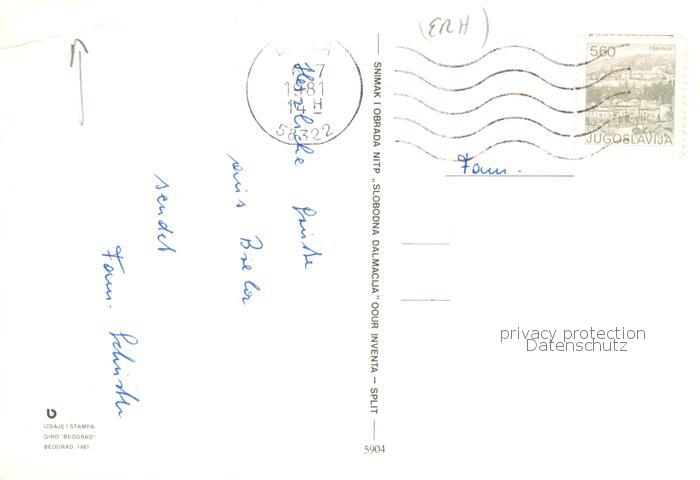 (ERH)
5.60
TRAVNIK
JUGOSLAVIJA
7
1981
14 H
58322
Herzliche Grüße
aus Brela
sendet
Fam.
Fam.
SNIMAK I OBRADA NITP „SLOBODNA DALMACIJA" OOUR INVENTA — SPLIT
5904
privacy protection
Datenschutz
IZDAJE I ŠTAMPA
GIRO "BEOGRAD"
BEOGRAD, 1981